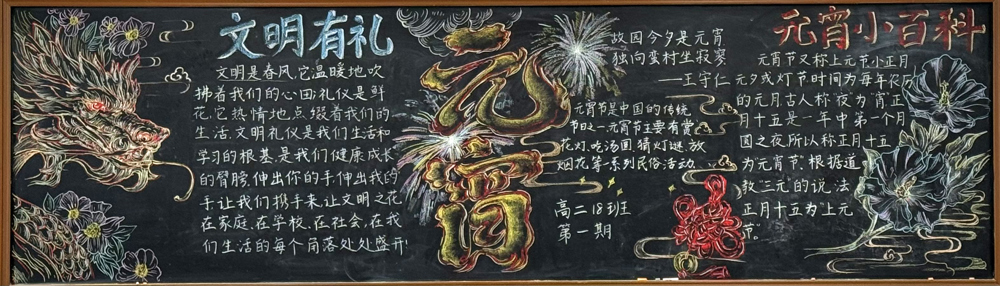 文明有礼
文明是春风,它温暖地吹
拂着我们的心田;礼仪是鲜
花,它热情地点缀着我们的
生活。文明礼仪是我们生活和
学习的根基,是我们健康成长
的臂膀。伸出你的手,伸出我的
手,让我们携手来,让文明之花
在家庭、在学校、在社会、在我
们生活的每个角落处处盛开!
元宵
故园今夕是元宵
独向蛮村坐寂寥
——王守仁
元宵节是中国的传统
节日之一,元宵节主要有赏
花灯、吃汤圆、猜灯谜、放
烟花等一系列民俗活动
高二18班
第一期
元宵小百科
元宵节又称上元节小正月
元夕或灯节时间为每年农历
的元月古人称"夜"为"宵"正
月十五是一年中第一个月
圆之夜所以称正月十五
为元宵节。根据道
教"三元"的说法
正月十五为"上元
节"。